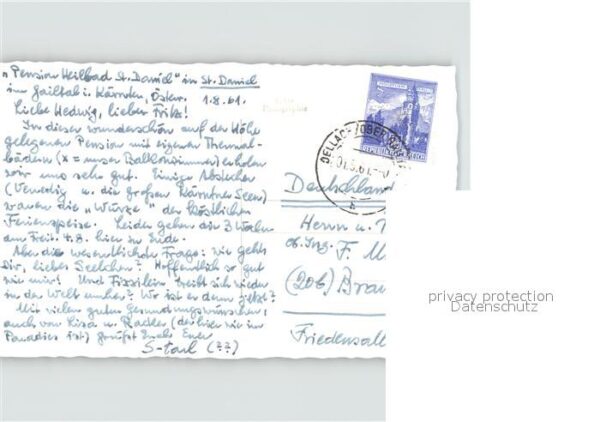 "Pension Heilbad St. Daniel" in St. Daniel
im Gailtal i. Kärnten, Österr. 1.8.61.
Liebe Hedwig, lieber Fritz!
In dieser wunderschön auf der Höhe
gelegenen Pension mit eigenen Thermal-
bädern (x = unser Balkonzimmer) erholen
wir uns sehr gut. Einige Abstecher
(Venedig u. die großen Kärntner Seen)
waren die "Würze" der köstlichen
Ferienspeise. Leider gehen die 3 Wochen
am Freit. 4.8. hier zu Ende.
Aber die wesentlichste Frage: wie geht's
Dir, liebes Seelchen? Hoffentlich so gut
wie mir! Und treibt sich wieder
in der Welt umher? Wo ist er denn jetzt?
Mit vielen guten Genesungswünschen,
auch von u. (der hier wie im
Paradies ist) grüßt Euch Euer
(??)
DELLACH
Deutschland
Herrn u.
F. M
(20b) Brau
Friedensall
privacy protection
Datenschutz